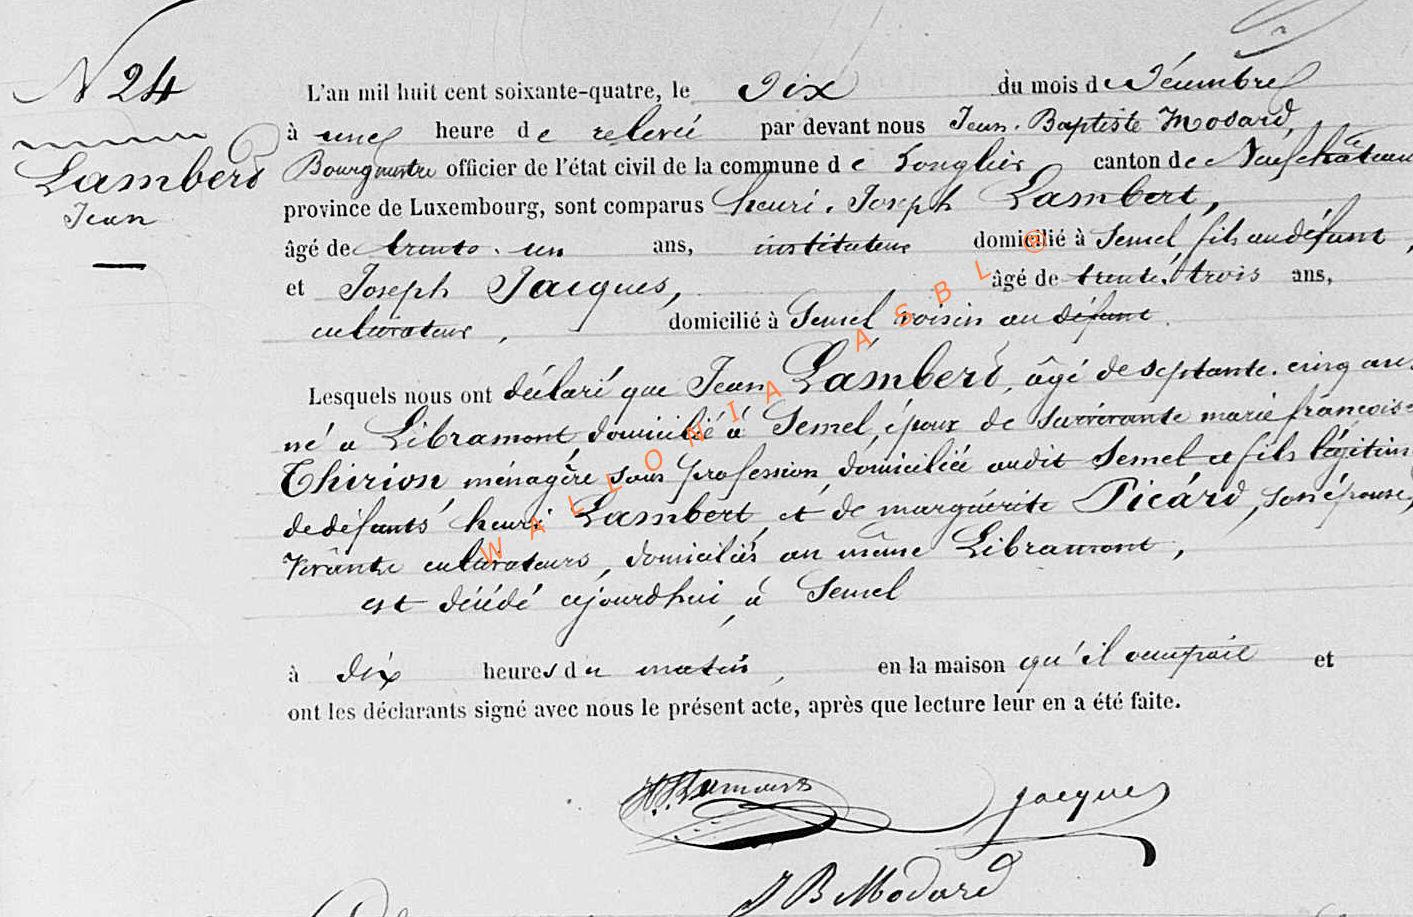 N 24
Lambert
Jean
L'an mil huit cent soixante-quatre, le Dix du mois de Décembre
à une heure de relevée par devant nous Jean-Baptiste Modard,
Bourgmestre officier de l'état civil de la commune de Longlier canton de Neufchâteau
province de Luxembourg, sont comparus henri-Joseph Lambert,
âgé de trente-un ans, instituteur domicilié à Semel fils au défunt,
et Joseph Jacques, âgé de trente-trois ans,
cultivateur, domicilié à Semel voisin au défunt.
Lesquels nous ont déclaré que Jean Lambert, âgé de septante-cinq ans
né a Libramont, domicilié à Semel, époux de survivante marie françoise
Thirion ménagère sans profession, domiciliée audit Semel et fils légitim
de défunts henri Lambert, et de marguérite Picard, son épouse,
vivants cultivateurs, domiciliés au même Libramont,
est décédé ajourdhui, à Semel
à dix heures du matin, en la maison qu'il occupait et
ont les déclarants signé avec nous le présent acte, après que lecture leur en a été faite.
Jacques
J B Modard
WALLONIA ASBL ®